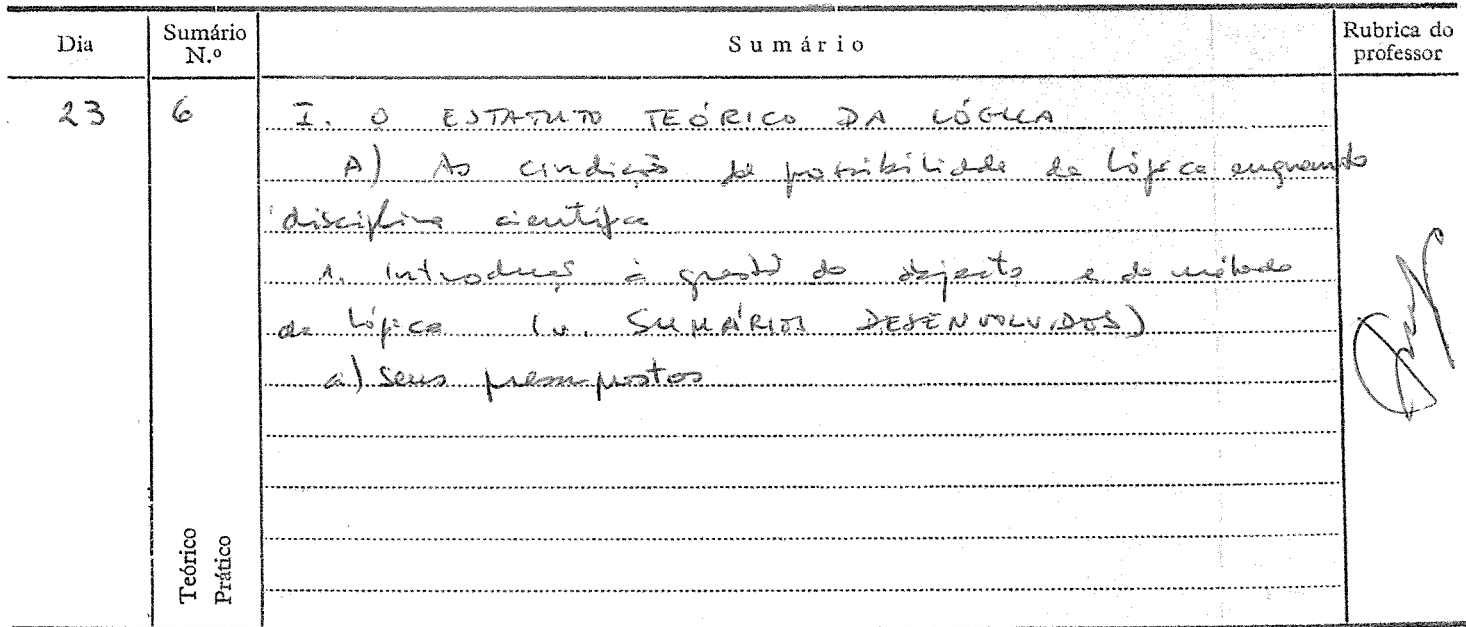 Dia
Sumário N.º
Sumário
Rubrica do professor
23
6
I. O ESTATUTO TEÓRICO DA LÓGICA
A) As condições de possibilidade da Lógica enquanto
disciplina científica
1. Introdução à questão do objecto e do método
da Lógica (v. SUMÁRIOS DESENVOLVIDOS)
a) seus pressupostos
Teórico
Prático